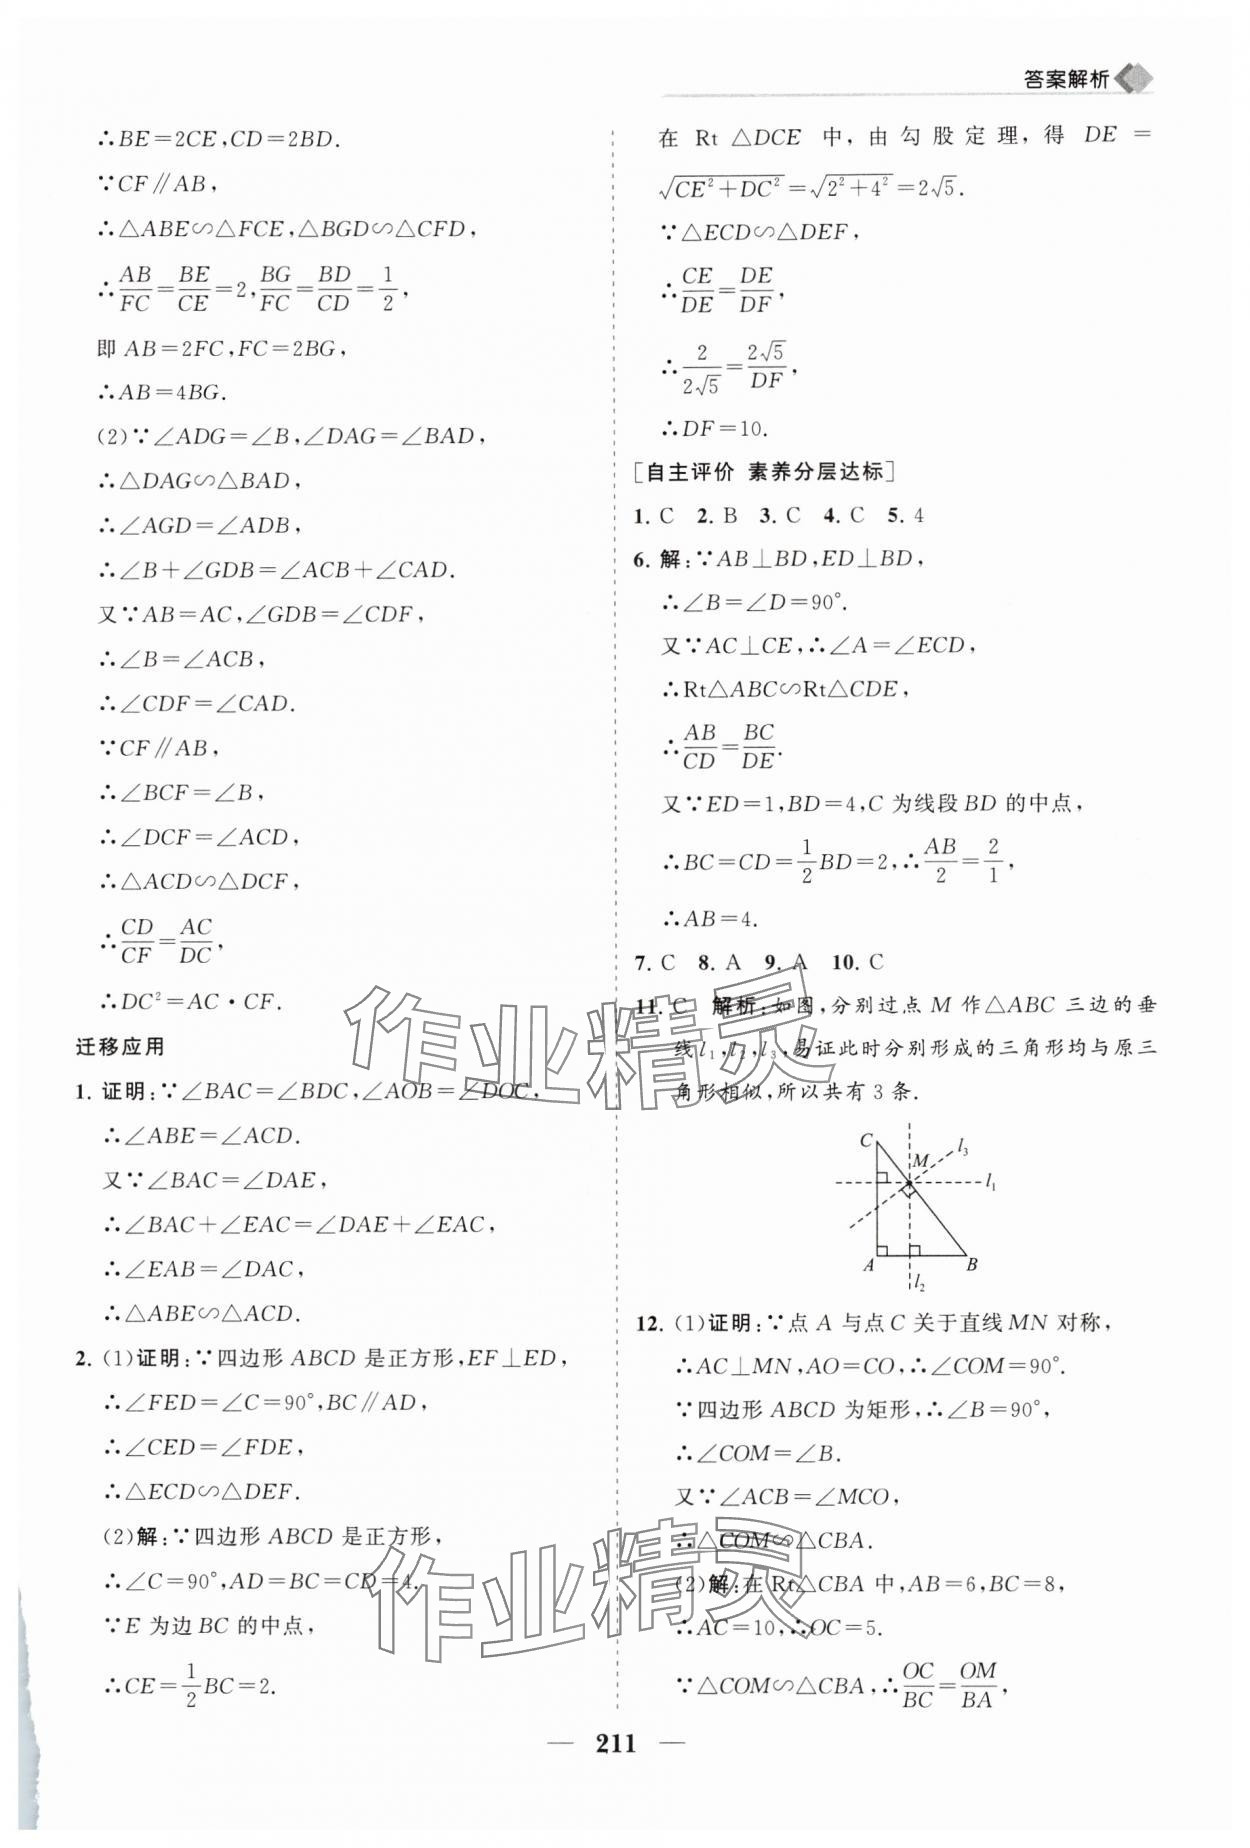 答案解析
∴BE=2CE,CD=2BD.
∵CF∥AB,
∴△ABE∽△FCE,△BGD∽△CFD,
∴AB/FC=BE/CE=2,BG/FC=BD/CD=1/2,
即 AB=2FC,FC=2BG,
∴AB=4BG.
(2)∵∠ADG=∠B,∠DAG=∠BAD,
∴△DAG∽△BAD,
∴∠AGD=∠ADB,
∴∠B+∠GDB=∠ACB+∠CAD.
又∵AB=AC,∠GDB=∠CDF,
∴∠B=∠ACB,
∴∠CDF=∠CAD.
∵CF∥AB,
∴∠BCF=∠B,
∴∠DCF=∠ACD,
∴△ACD∽△DCF,
∴CD/CF=AC/DC,
∴DC²=AC·CF.
迁移应用
1. 证明:∵∠BAC=∠BDC,∠AOB=∠DOC,
∴∠ABE=∠ACD.
又∵∠BAC=∠DAE,
∴∠BAC+∠EAC=∠DAE+∠EAC,
∴∠EAB=∠DAC,
∴△ABE∽△ACD.
2. (1)证明:∵四边形 ABCD 是正方形,EF⊥ED,
∴∠FED=∠C=90°,BC∥AD,
∴∠CED=∠FDE,
∴△ECD∽△DEF.
(2)解:∵四边形 ABCD 是正方形,
∴∠C=90°,AD=BC=CD=4.
∵E 为边 BC 的中点,
∴CE=1/2BC=2.
在 Rt △DCE 中,由勾股定理,得 DE=
√(CE²+DC²)=√(2²+4²)=2√5.
∵△ECD∽△DEF,
∴CE/DE=DE/DF,
∴2/2√5=2√5/DF,
∴DF=10.
[自主评价 素养分层达标]
1. C 2. B 3. C 4. C 5. 4
6. 解:∵AB⊥BD,ED⊥BD,
∴∠B=∠D=90°.
又∵AC⊥CE,∴∠A=∠ECD,
∴Rt△ABC∽Rt△CDE,
∴AB/CD=BC/DE.
又∵ED=1,BD=4,C 为线段 BD 的中点,
∴BC=CD=1/2BD=2,∴AB/2=2/1,
∴AB=4.
7. C 8. A 9. A 10. C
11. C 解析:如图,分别过点 M 作△ABC 三边的垂
线 l₁,l₂,l₃,易证此时分别形成的三角形均与原三
角形相似,所以共有 3 条.
C
M
l₃
l₁
A
B
l₂
12. (1)证明:∵点 A 与点 C 关于直线 MN 对称,
∴AC⊥MN,AO=CO,∴∠COM=90°.
∵四边形 ABCD 为矩形,∴∠B=90°,
∴∠COM=∠B.
又∵∠ACB=∠MCO,
∴△COM∽△CBA.
(2)解:在 Rt△CBA 中,AB=6,BC=8,
∴AC=10,∴OC=5.
∵△COM∽△CBA,∴OC/BC=OM/BA,
作业精灵
作业精灵
— 211 —